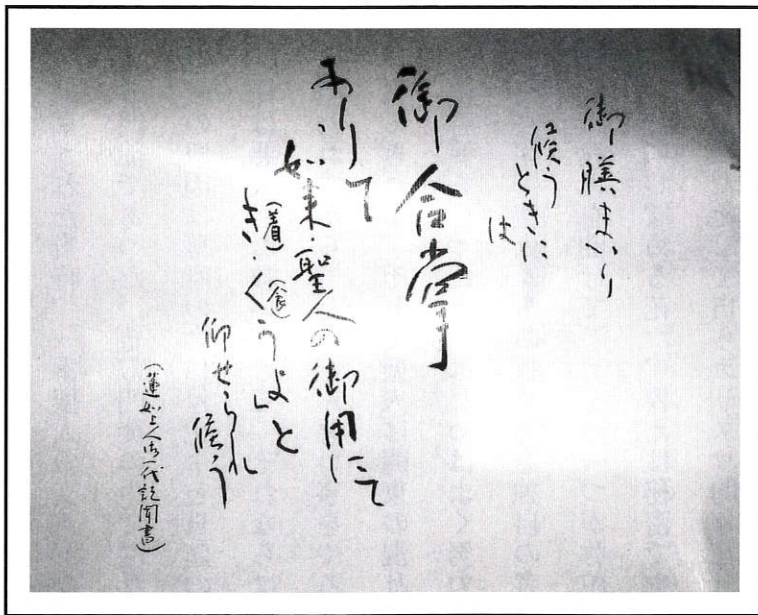 御膳まいり
候う
ときに
は
御合掌
ありて
「如来・聖人の御用にて
き(着)・く(食)うよ」と
仰せられ
候う
(蓮如上人御一代記聞書)